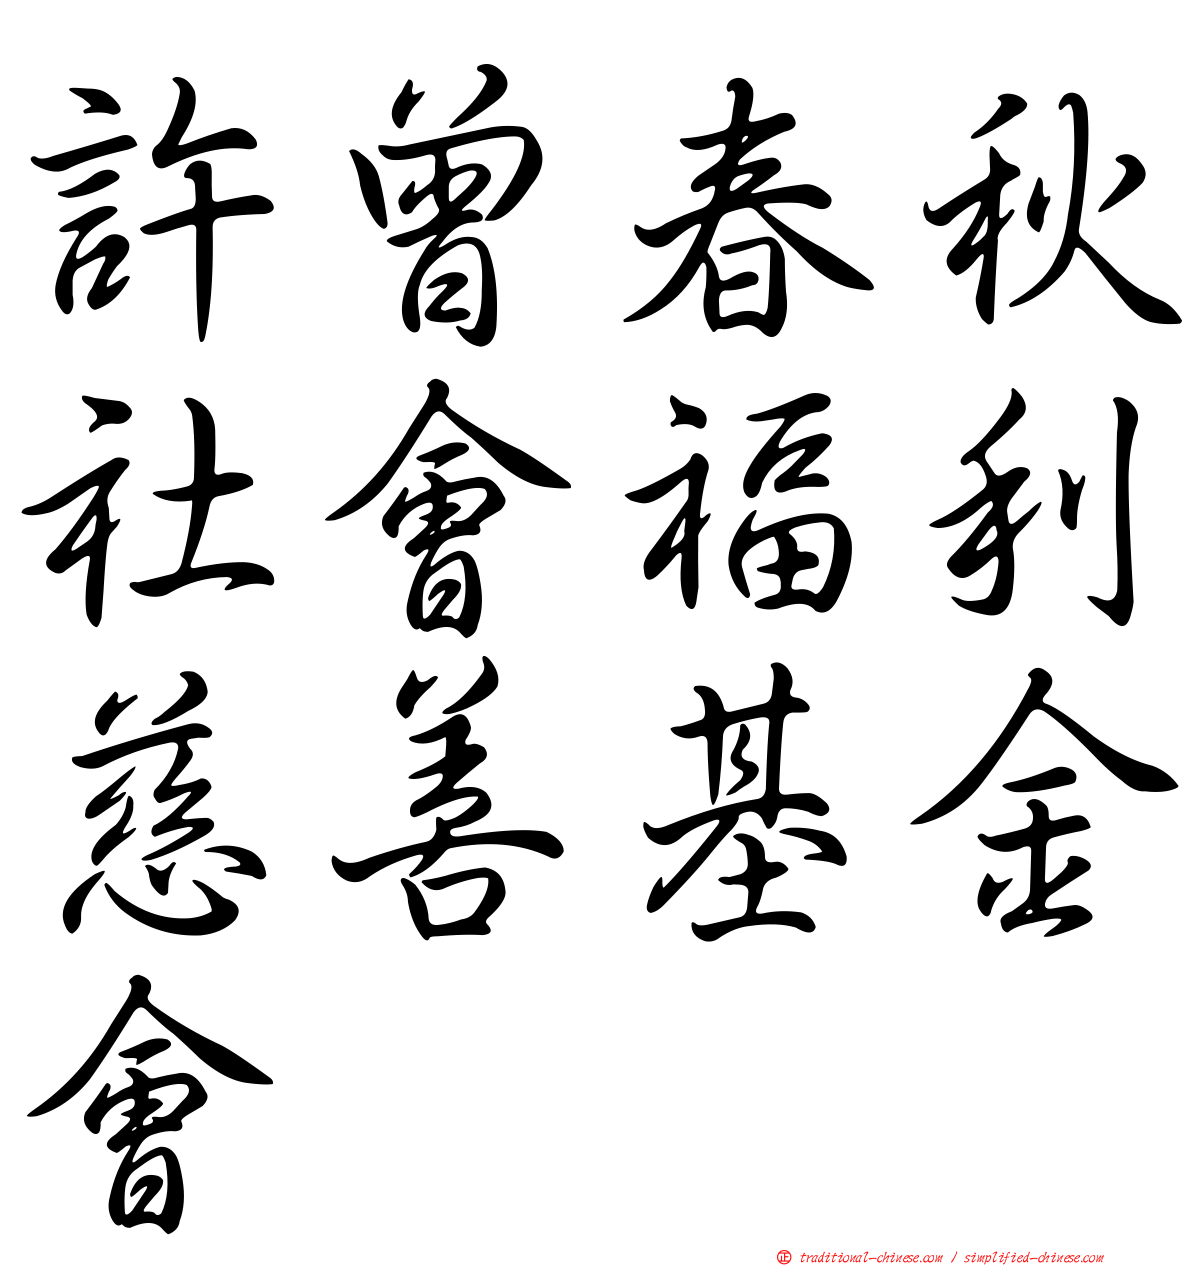 許曾春秋
社會福利
慈善基金
會
㊣ traditional-chinese.com / simplified-chinese.com